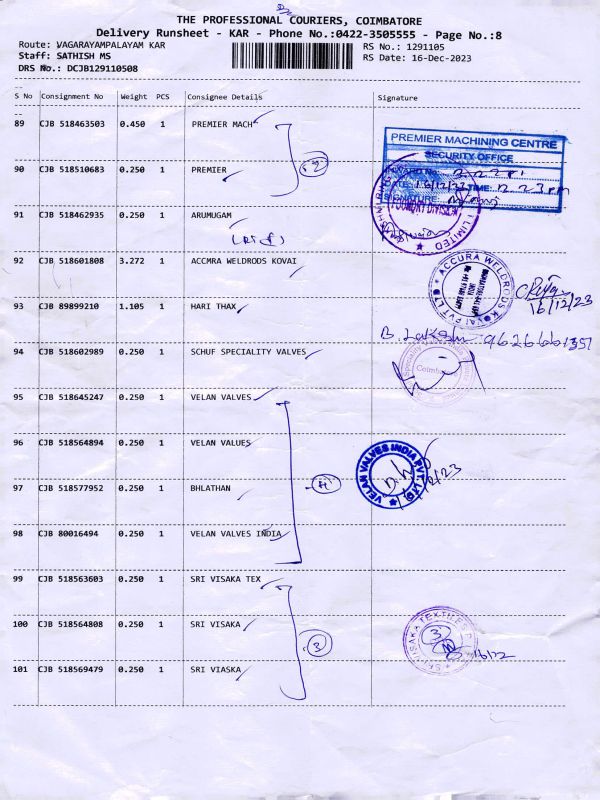 THE PROFESSIONAL COURIERS, COIMBATORE
Delivery Runsheet - KAR - Phone No.:0422-3505555 - Page No.:8
Route: VAGARAYAMPALAYAM KAR RS No.: 1291105
Staff: SATHISH MS RS Date: 16-Dec-2023
DRS No.: DCJB129110508
S No Consignment No Weight PCS Consignee Details Signature
89 CJB 518463503 0.450 1 PREMIER MACH
PREMIER MACHINING CENTRE
SECURITY OFFICE
90 CJB 518510683 0.250 1 PREMIER 2
INWARD No.
DATE: 16/12/23 TIME: 12.23pm
SIGNATURE:
91 CJB 518462935 0.250 1 ARUMUGAM
FOUNDRY DIVISION
LIMITED
92 CJB 518601808 3.272 1 ACCMRA WELDRODS KOVAI
ACCURA WELDRODS KOVAI PVT LTD
16/12/23
93 CJB 89899210 1.105 1 HARI THAX
94 CJB 518602989 0.250 1 SCHUF SPECIALITY VALVES
95 CJB 518645247 0.250 1 VELAN VALVES
96 CJB 518564894 0.250 1 VELAN VALUES
VELAN VALVES INDIA PVT. LTD
97 CJB 518577952 0.250 1 BHLATHAN 4
98 CJB 80016494 0.250 1 VELAN VALVES INDIA
99 CJB 518563603 0.250 1 SRI VISAKA TEX
100 CJB 518564808 0.250 1 SRI VISAKA 3
SRI VISAKA TEXTILES
3
101 CJB 518569479 0.250 1 SRI VIASKA